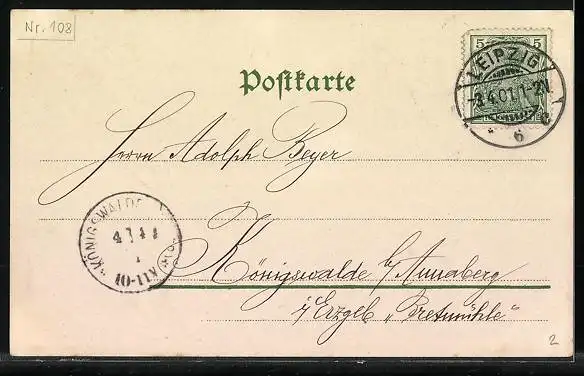 Nr. 108
5 5
LEIPZIG
-3.4.01. 1-2N.
6
Postkarte
Herrn Adolph Beyer
KÖNIGSWALDE
10-11V
Königswalde b/ Annaberg
i/ Erzgeb „Bretmühle“
2